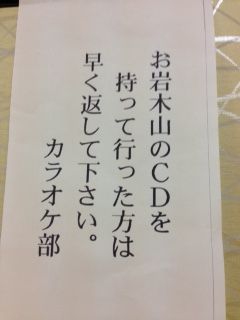 お岩木山のCDを
持って行った方は
早く返して下さい。
カラオケ部